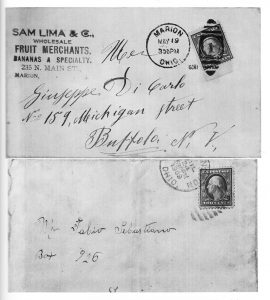 SAM LIMA & C.,
WHOLESALE
FRUIT MERCHANTS.
BANANAS A SPECIALTY.
235 N. MAIN ST.,
MARION,
MARION
MAY 19
3 30 PM
OHIO
Giuseppe Di Carlo
No 159, Michigan Street
Buffalo N. Y.
OHIO
Fabio Sebastiano
Box 926